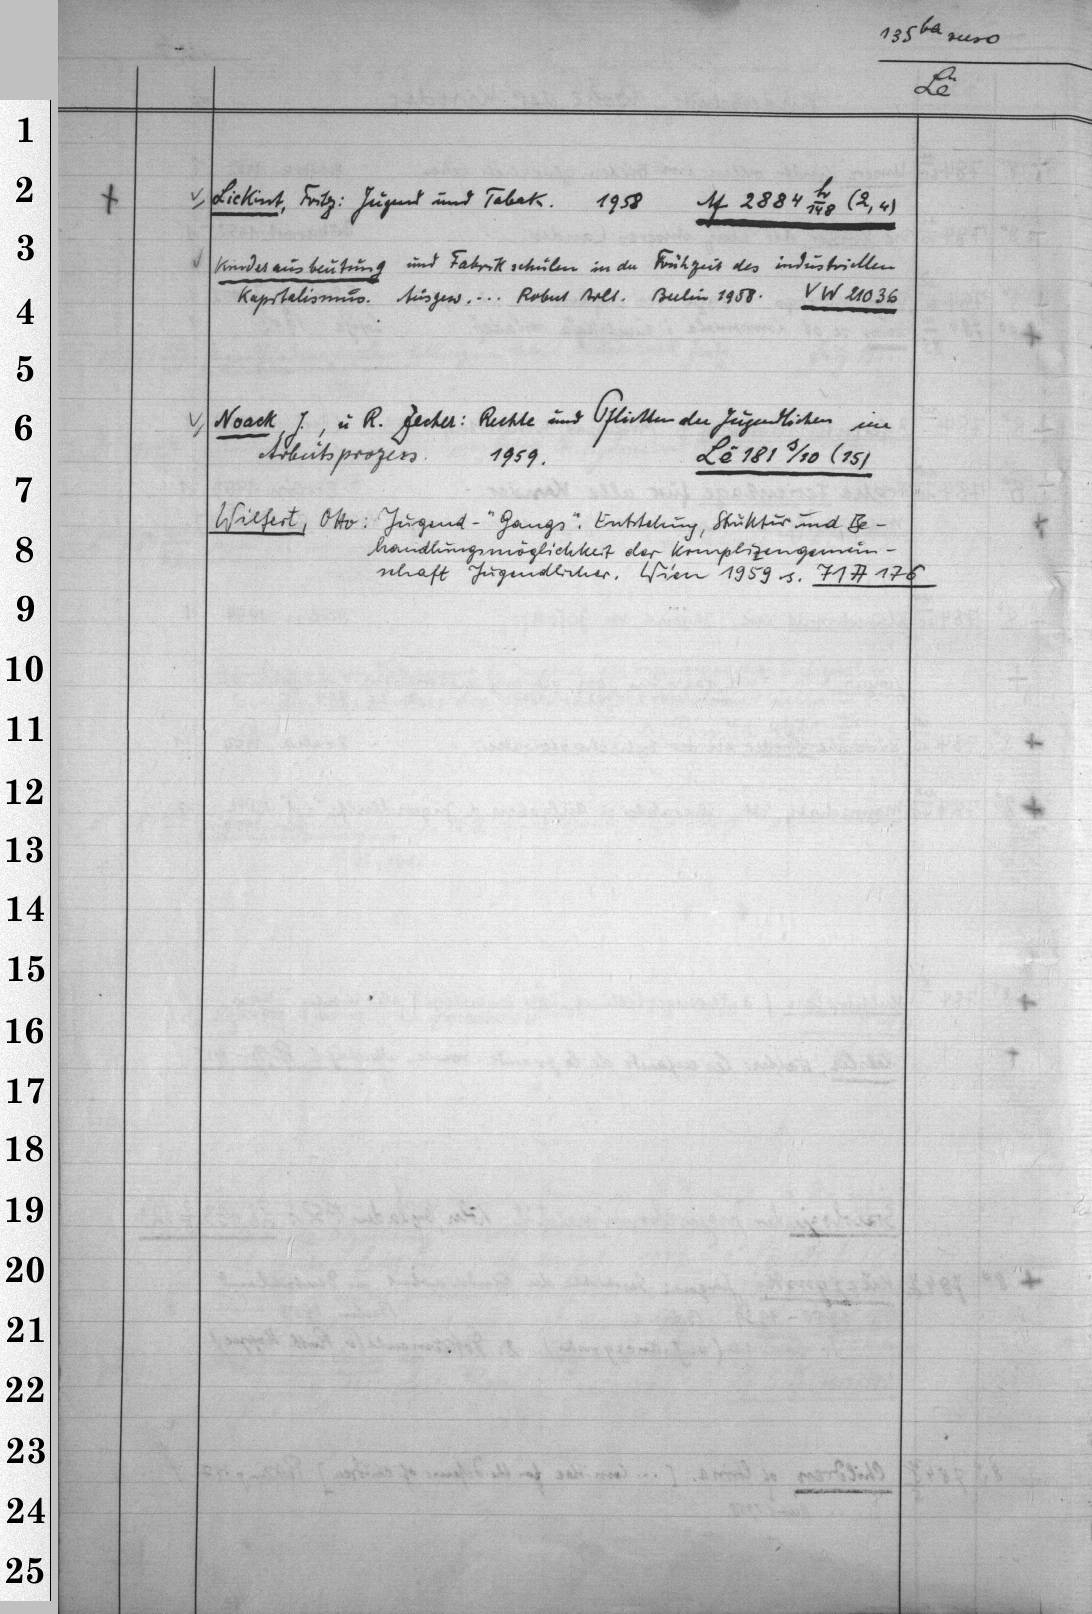 135 ba verso
Lē
1
2
3
4
5
6
7
8
9
10
11
12
13
14
15
16
17
18
19
20
21
22
23
24
25
+ √, Lickint, Fritz: Jugend und Tabak. 1958 2884 hr/148 (2,4)
√ Kinderausbeutung und Fabrikschulen in der Frühzeit des industriellen
Kapitalismus. Ausgew. ... Robert Alt. Berlin 1958. VW 21036
√, Noack, J., u R. Zecher: Rechte und Pflichten der Jugendlichen im
Arbeitsprozess. 1959. Lē 181 s/10 (15)
Wilfert, Otto: Jugend-"Gangs". Entstehung, Struktur und Be-
handlungsmöglichkeit der Komplizengemein-
schaft Jugendlicher. Wien 1959 s. 71 A 176